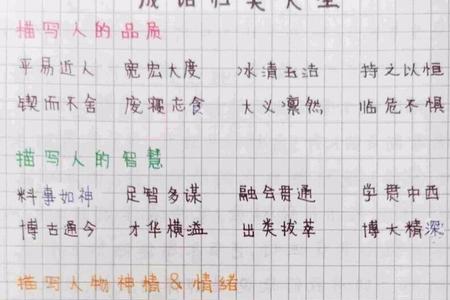 成语归类大全
描写人的品质
平易近人 宽宏大度 冰清玉洁 持之以恒
锲而不舍 废寝忘食 大义凛然 临危不惧
描写人的智慧
料事如神 足智多谋 融会贯通 学贯中西
博古通今 才华横溢 出类拔萃 博大精深
描写人物神情&情绪